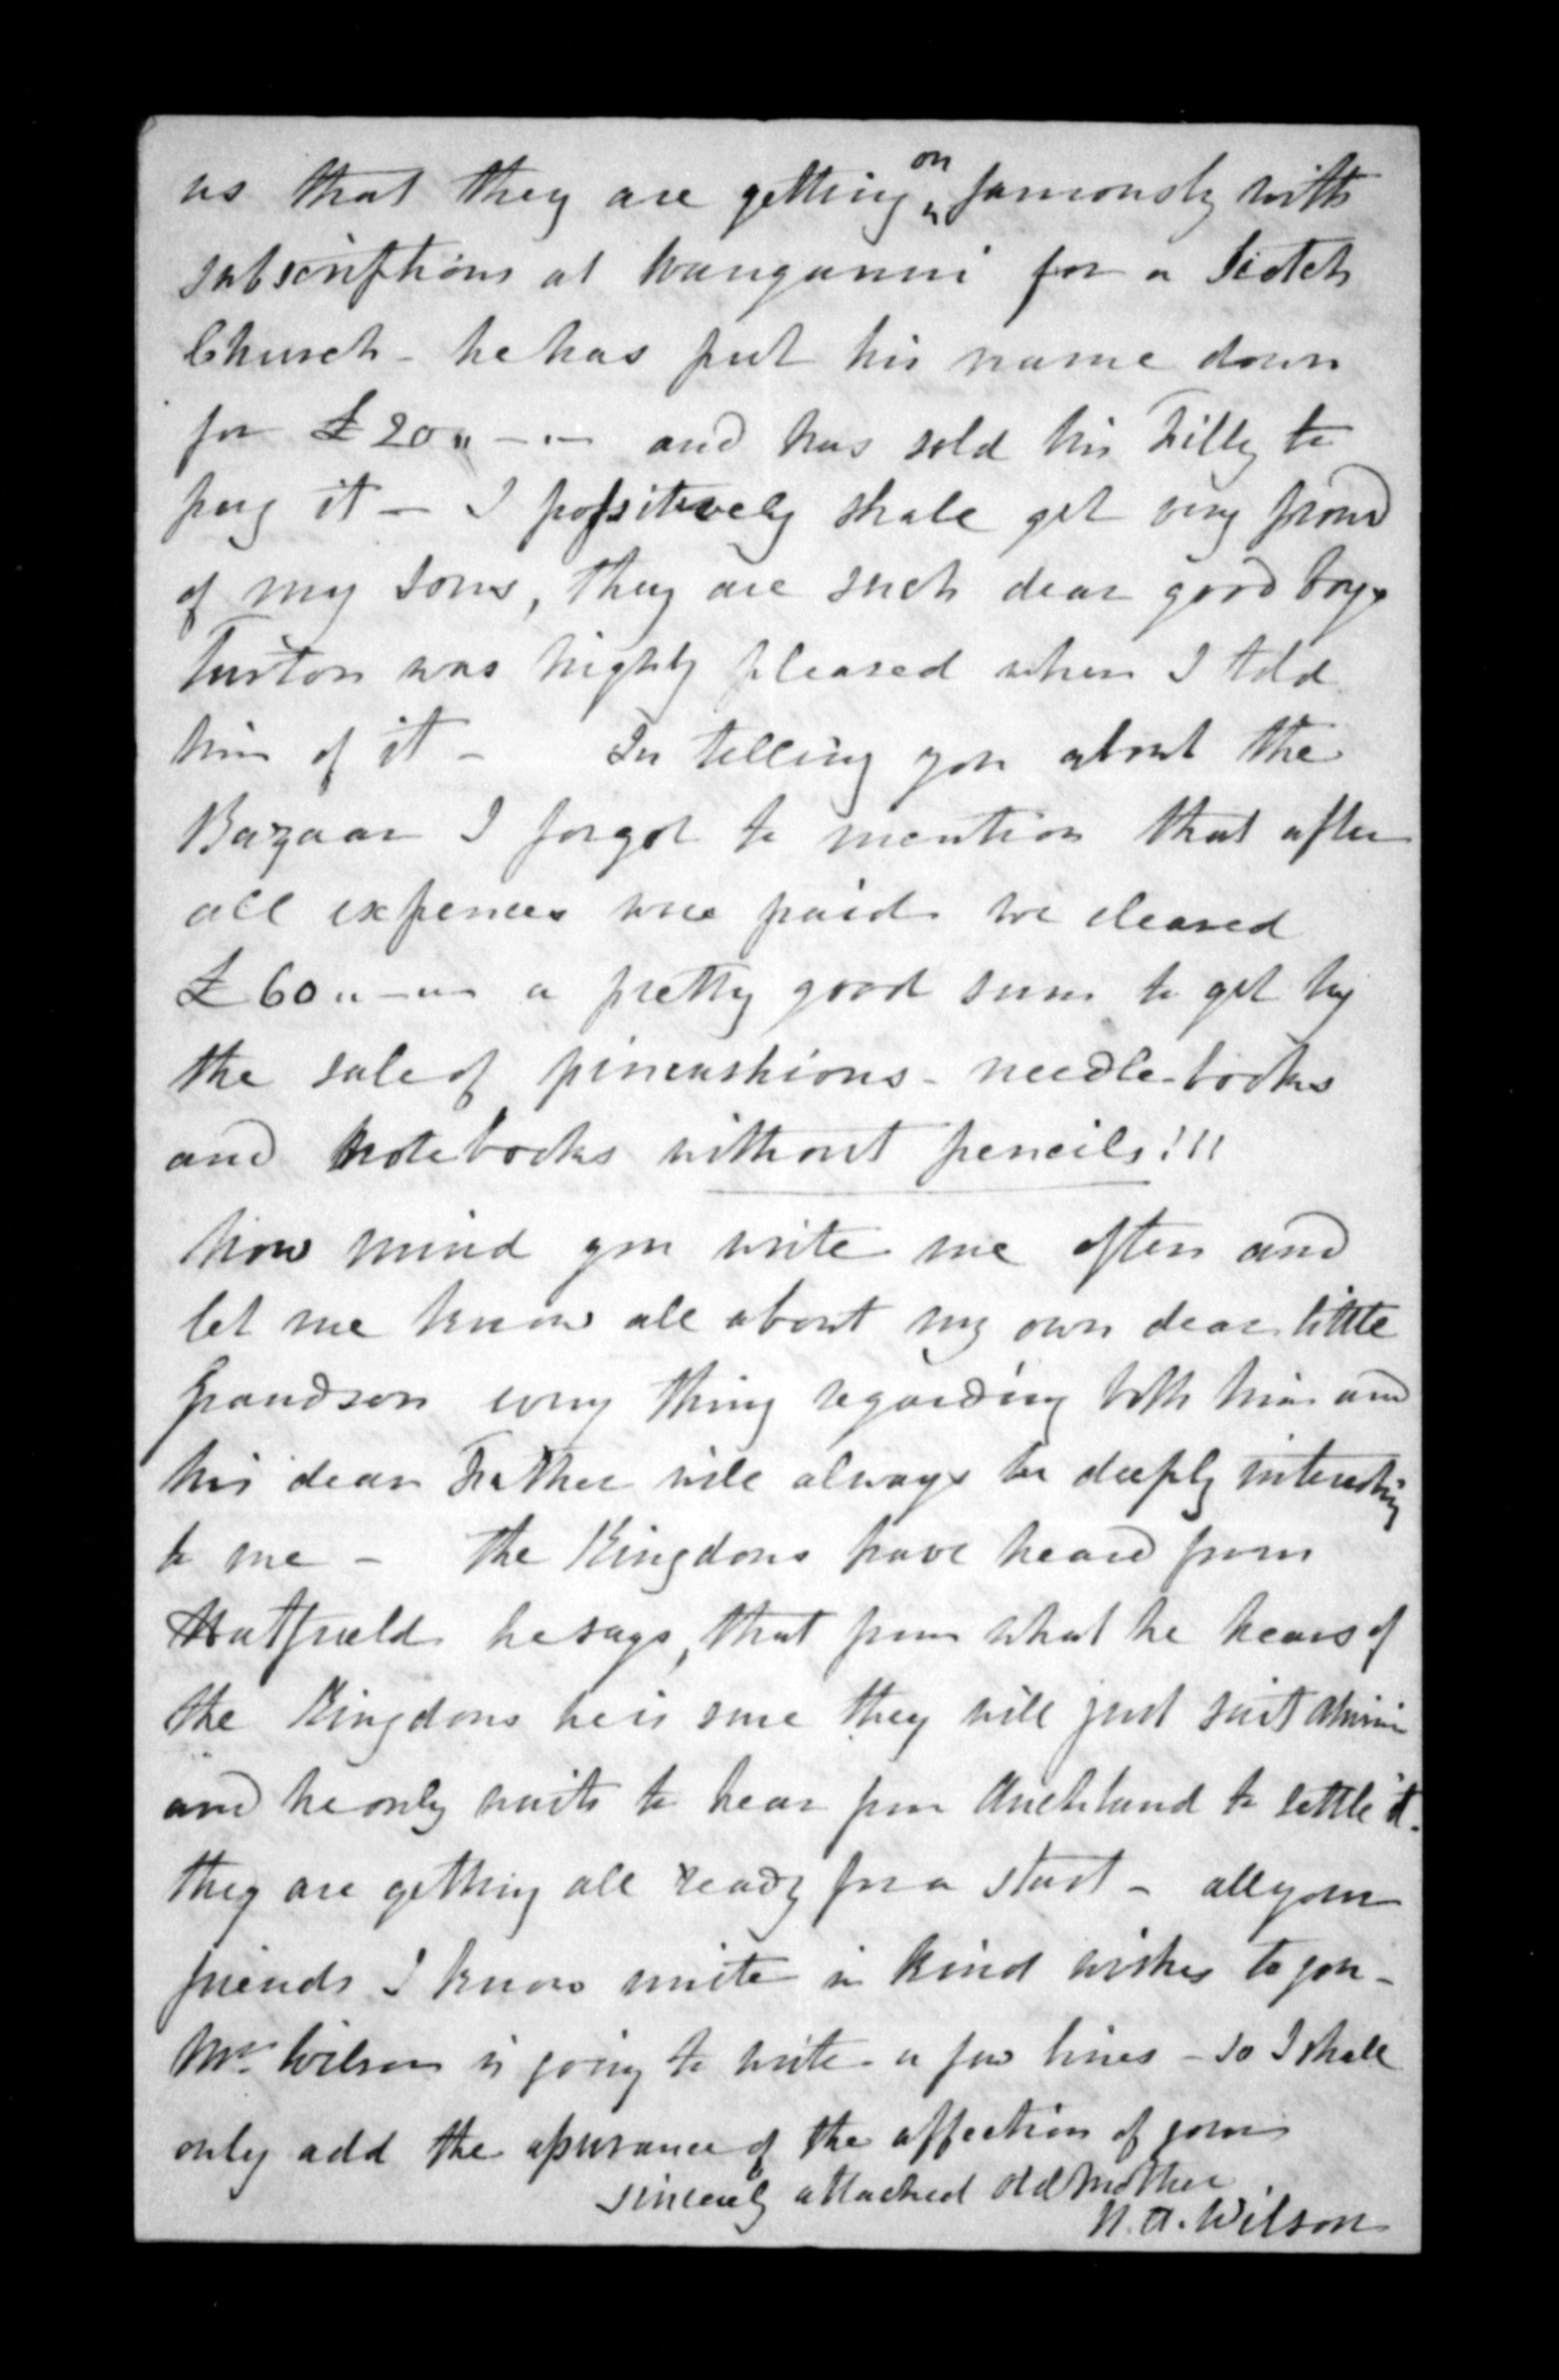 us that they are getting on famously with
subscriptions at Wanganui for a Scotch
Church - he has put his name down
for £20"-"- and has sold his Filly to
pay it - I possitively shall get very proud
of my sons, they are such dear good boys
Turton was highly pleased when I told
him of it - In telling you about the
Bazaar I forgot to mention that after
all expences were paid we cleared
£60"-"- a pretty good sum to get by
the sale of pincushions - needle-books
and notebooks without pencils!!!
Now mind you write me often and
let me know all about my own dear little
Grandson every thing regarding both him and
his dear Father will always be deeply interesting
to me - the Kingdons have heard from
Hatfield he says, that from what he hears of
the Kingdons he is sure they will just suit
and he only waits to hear from Auckland to settle it -
they are getting all ready for a start - all your
friends I know unite in kind wishes to you -
Mr Wilson is going to write a few lines - so I shall
only add the assurance of the affection of your
sincerely attached old Mother
N. A. Wilson